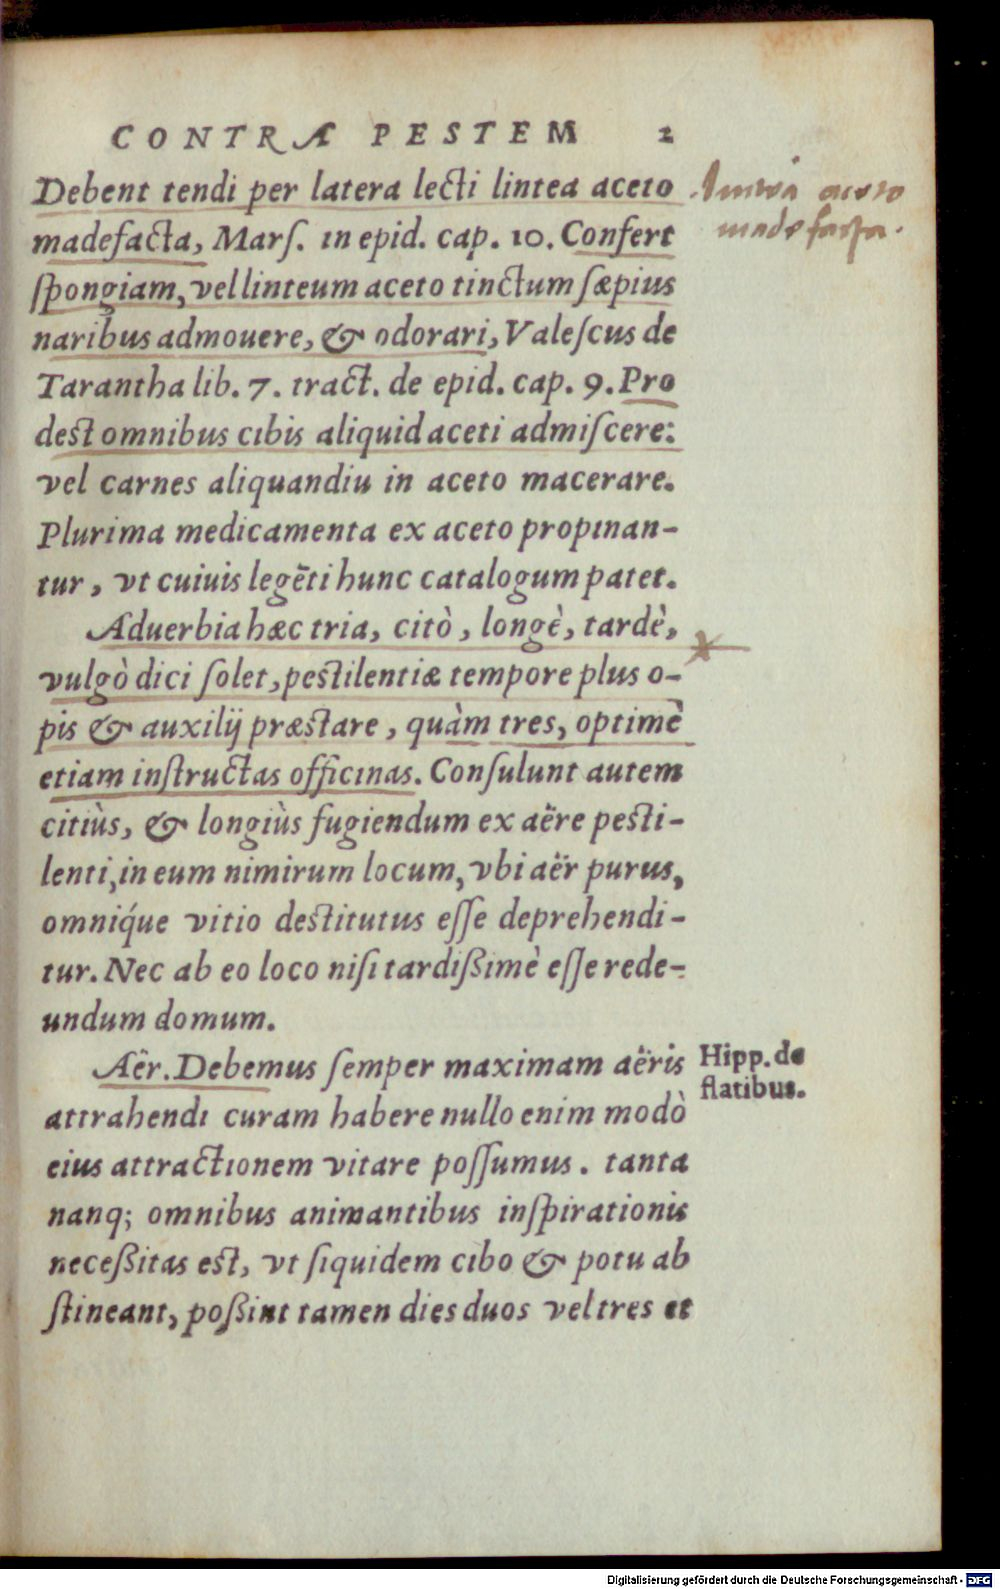 CONTRA PESTEM 2
Debent tendi per latera lecti lintea aceto
madefacta, Marſ. in epid. cap. 10. Confert
ſpongiam, vel linteum aceto tinctum ſæpius
naribus admouere, & odorari, Valeſcus de
Tarantha lib. 7. tract. de epid. cap. 9. Pro
dest omnibus cibis aliquid aceti admiſcere:
vel carnes aliquandiu in aceto macerare.
Plurima medicamenta ex aceto propinan-
tur, vt cuiuis legẽti hunc catalogum patet.
Aduerbia hæc tria, citò, longè, tardè,
vulgò dici ſolet, peſtilentiæ tempore plus o-
pis & auxilij præſtare, quàm tres, optimè
etiam inſtructas officinas. Conſulunt autem
citiùs, & longiùs fugiendum ex aëre peſti-
lenti, in eum nimirum locum, vbi aër purus,
omniq́ue vitio deſtitutus eſſe deprehendi-
tur. Nec ab eo loco niſi tardißimè eſſe rede-
undum domum.
Aër. Debemus ſemper maximam aëris
attrahendi curam habere nullo enim modò
eius attractionem vitare poſſumus. tanta
nanq; omnibus animantibus inſpirationis
neceßitas eſt, vt ſiquidem cibo & potu ab
ſtineant, poßint tamen dies duos vel tres et
lintea aceto
madefacta.
Hipp. de
flatibus.
Digitalisierung gefördert durch die Deutsche Forschungsgemeinschaft - DFG